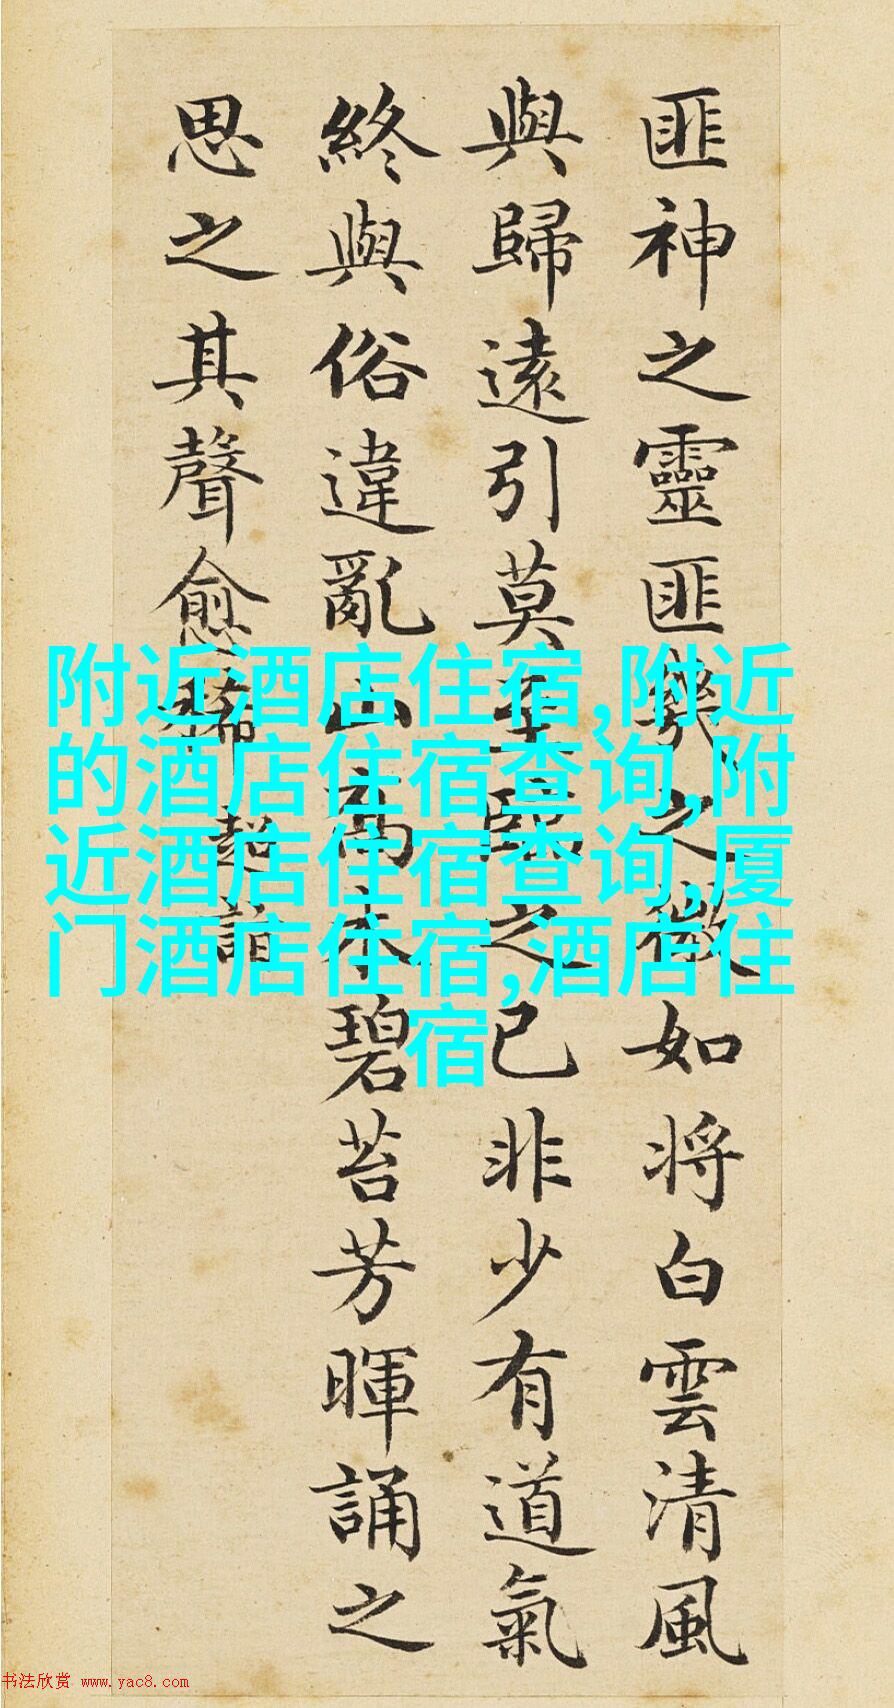 匪神之靈匪幾之微如將白雲清風
與歸遠引莫至臨之已非少有道氣
終與俗違亂山高木碧苔芳暉誦之
思之其聲愈稀 超詣
附近酒店住宿,附近
的酒店住宿查询,附
近酒店住宿查询,厦
门酒店住宿,酒店住
宿
书法欣赏 www.yac8.com